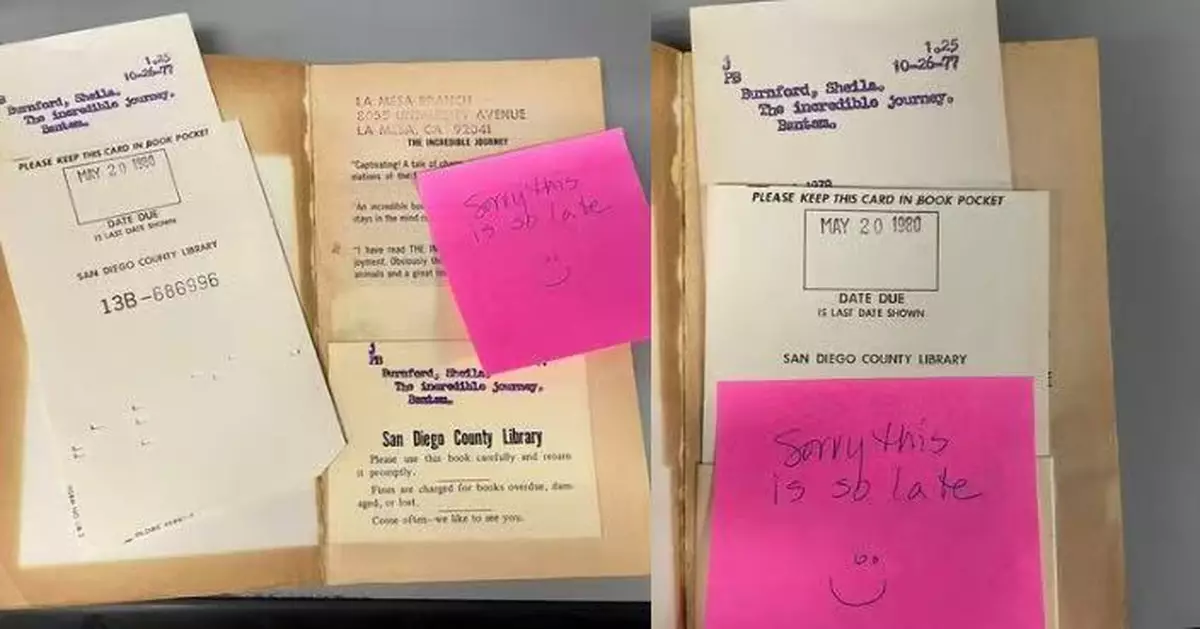 1.25
10-26-77
Burnford, Sheila.
The incredible journey.
Bantam.
PLEASE KEEP THIS CARD IN BOOK POCKET
MAY 20 1980
DATE DUE
IS LAST DATE SHOWN
SAN DIEGO COUNTY LIBRARY
13B-686996
LA MESA BRANCH
8055 UNIVERSITY AVENUE
LA MESA, CA 92041
THE INCREDIBLE JOURNEY
"Captivating! A tale of
of the
"An incredible
stays in the mind
"I have read THE
joyment. Obviously
animals and a great
Sorry this
is so late
J
PB
Burnford, Sheila.
The incredible journey.
Bantam.
San Diego County Library
Please use this book carefully and return
it promptly.
Fines are charged for books overdue, dam-
aged, or lost.
Come often—we like to see you.
1.25
10-26-77
j
PB
Burnford, Sheila.
The incredible journey.
Bantam.
PLEASE KEEP THIS CARD IN BOOK POCKET
MAY 20 1980
DATE DUE
IS LAST DATE SHOWN
SAN DIEGO COUNTY LIBRARY
Sorry this
is so late